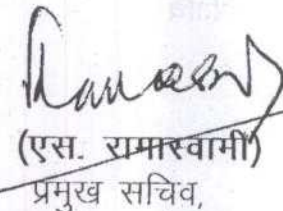 (एस. रामास्वामी)
प्रमुख सचिव,